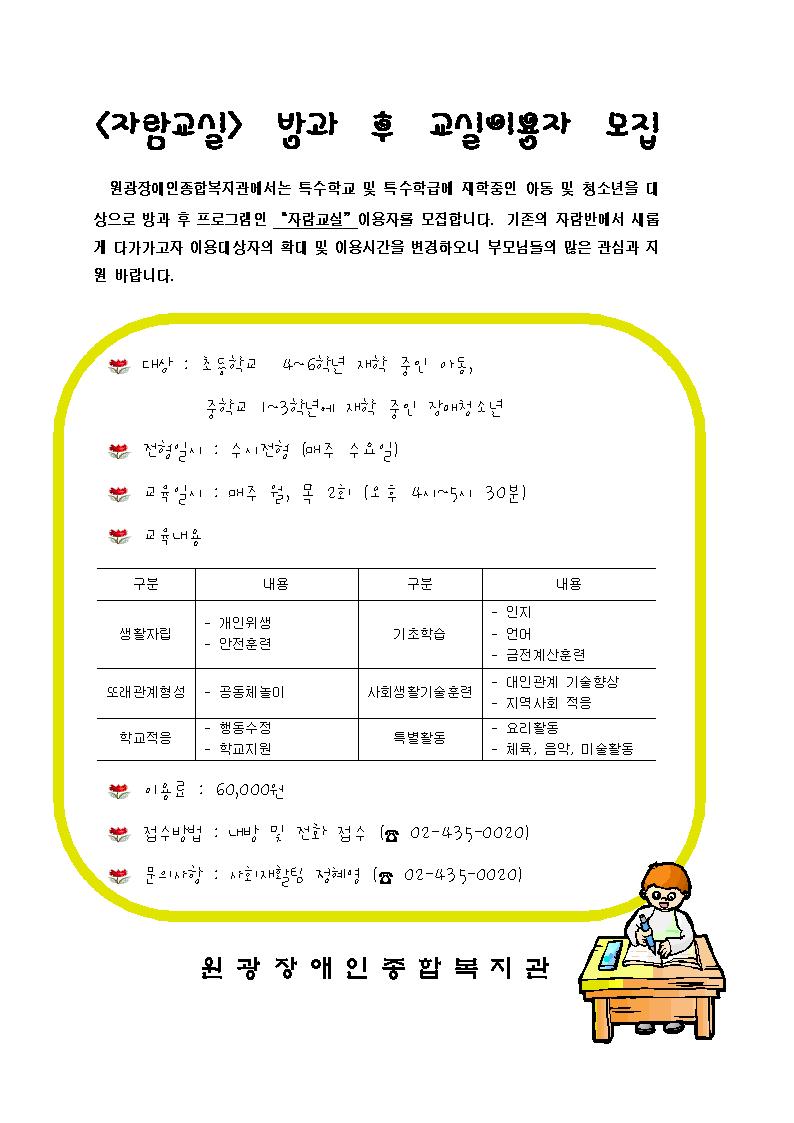 <자람교실> 방과 후 교실이용자 모집
원광장애인종합복지관에서는 특수학교 및 특수학급에 재학중인 아동 및 청소년을 대
상으로 방과 후 프로그램인 “자람교실”이용자를 모집합니다. 기존의 자람반에서 새롭
게 다가가고자 이용대상자의 확대 및 이용시간을 변경하오니 부모님들의 많은 관심과 지
원 바랍니다.
대상 : 초등학교 4~6학년 재학 중인 아동,
중학교 1~3학년에 재학 중인 장애청소년
전형일시 : 수시전형 (매주 수요일)
교육일시 : 매주 월, 목 2회 (오후 4시~5시 30분)
교육내용
구분 내용 구분 내용
생활자립
- 개인위생
- 안전훈련
기초학습
- 인지
- 언어
- 금전계산훈련
또래관계형성
- 공동체놀이
사회생활기술훈련
- 대인관계 기술향상
- 지역사회 적응
학교적응
- 행동수정
- 학교지원
특별활동
- 요리활동
- 체육, 음악, 미술활동
이용료 : 60,000원
접수방법 : 내방 및 전화 접수 (☎ 02-435-0020)
문의사항 : 사회재활팀 정혜영 (☎ 02-435-0020)
원광장애인종합복지관